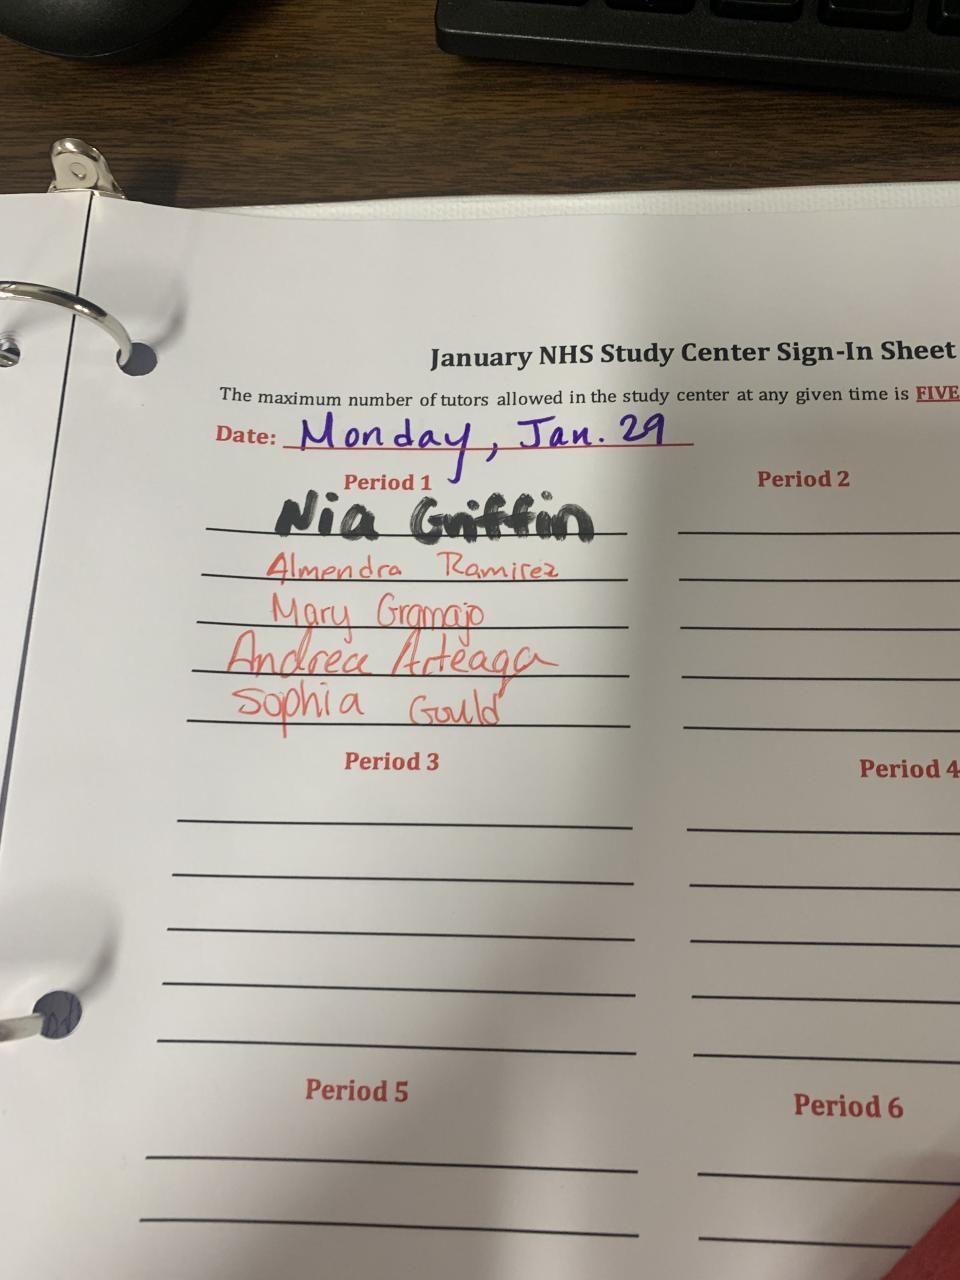 January NHS Study Center Sign-In Sheet
The maximum number of tutors allowed in the study center at any given time is FIVE
Date: Monday, Jan. 29
Period 1
Nia Griffin
Almendra Ramirez
Mary Gramajo
Andrea Arteaga
Sophia Gould
Period 2
Period 3
Period 4
Period 5
Period 6